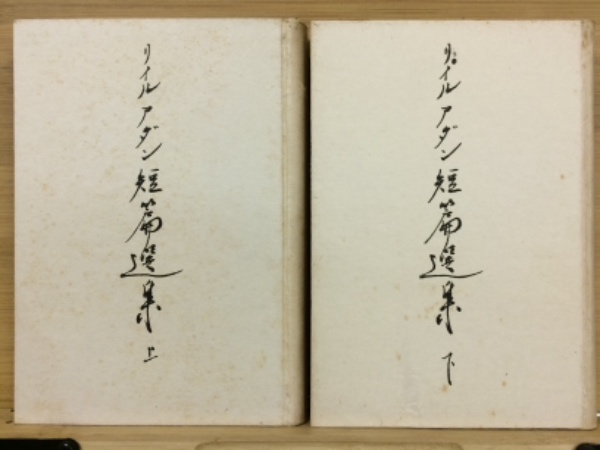 リイルアダン短篇選集 上
リイルアダン短篇選集 下